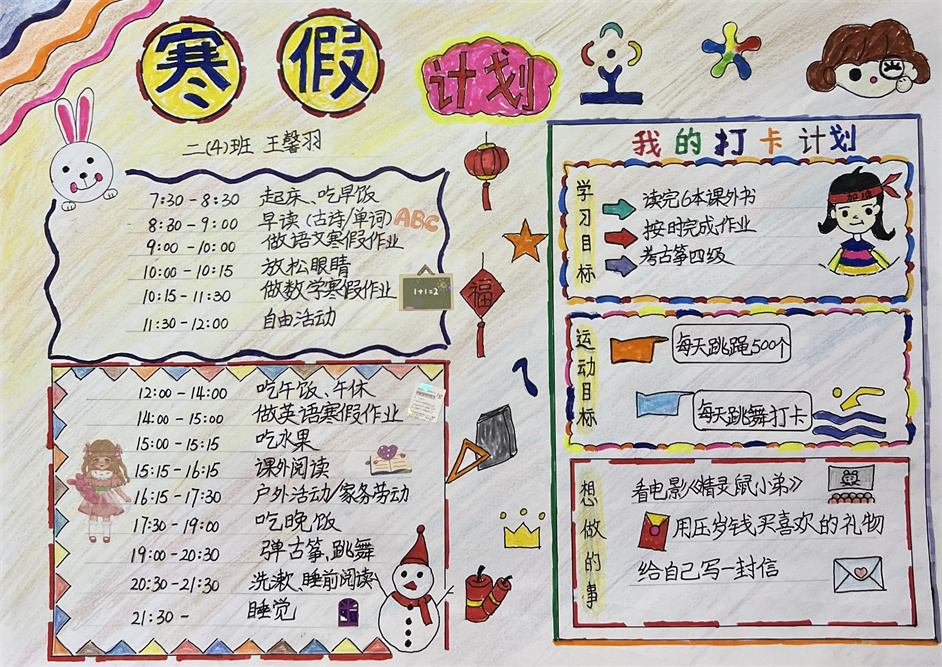 寒假计划
二(4)班 王馨羽
7:30-8:30 起床、吃早饭
8:30-9:00 早读(古诗/单词) ABC
9:00-10:00 做语文寒假作业
10:00-10:15 放松眼睛
10:15-11:30 做数学寒假作业
1+1=2
11:30-12:00 自由活动
12:00-14:00 吃午饭、午休
14:00-15:00 做英语寒假作业
15:00-15:15 吃水果
15:15-16:15 课外阅读
16:15-17:30 户外活动/家务劳动
17:30-19:00 吃晚饭
19:00-20:30 弹古筝、跳舞
20:30-21:30 洗漱、睡前阅读
21:30- 睡觉
福
我的打卡计划
学习目标
读完6本课外书
按时完成作业
考古筝四级
加油
运动目标
每天跳绳500个
每天跳舞打卡
想做的事
看电影《精灵鼠小弟》
用压岁钱买喜欢的礼物
给自己写一封信